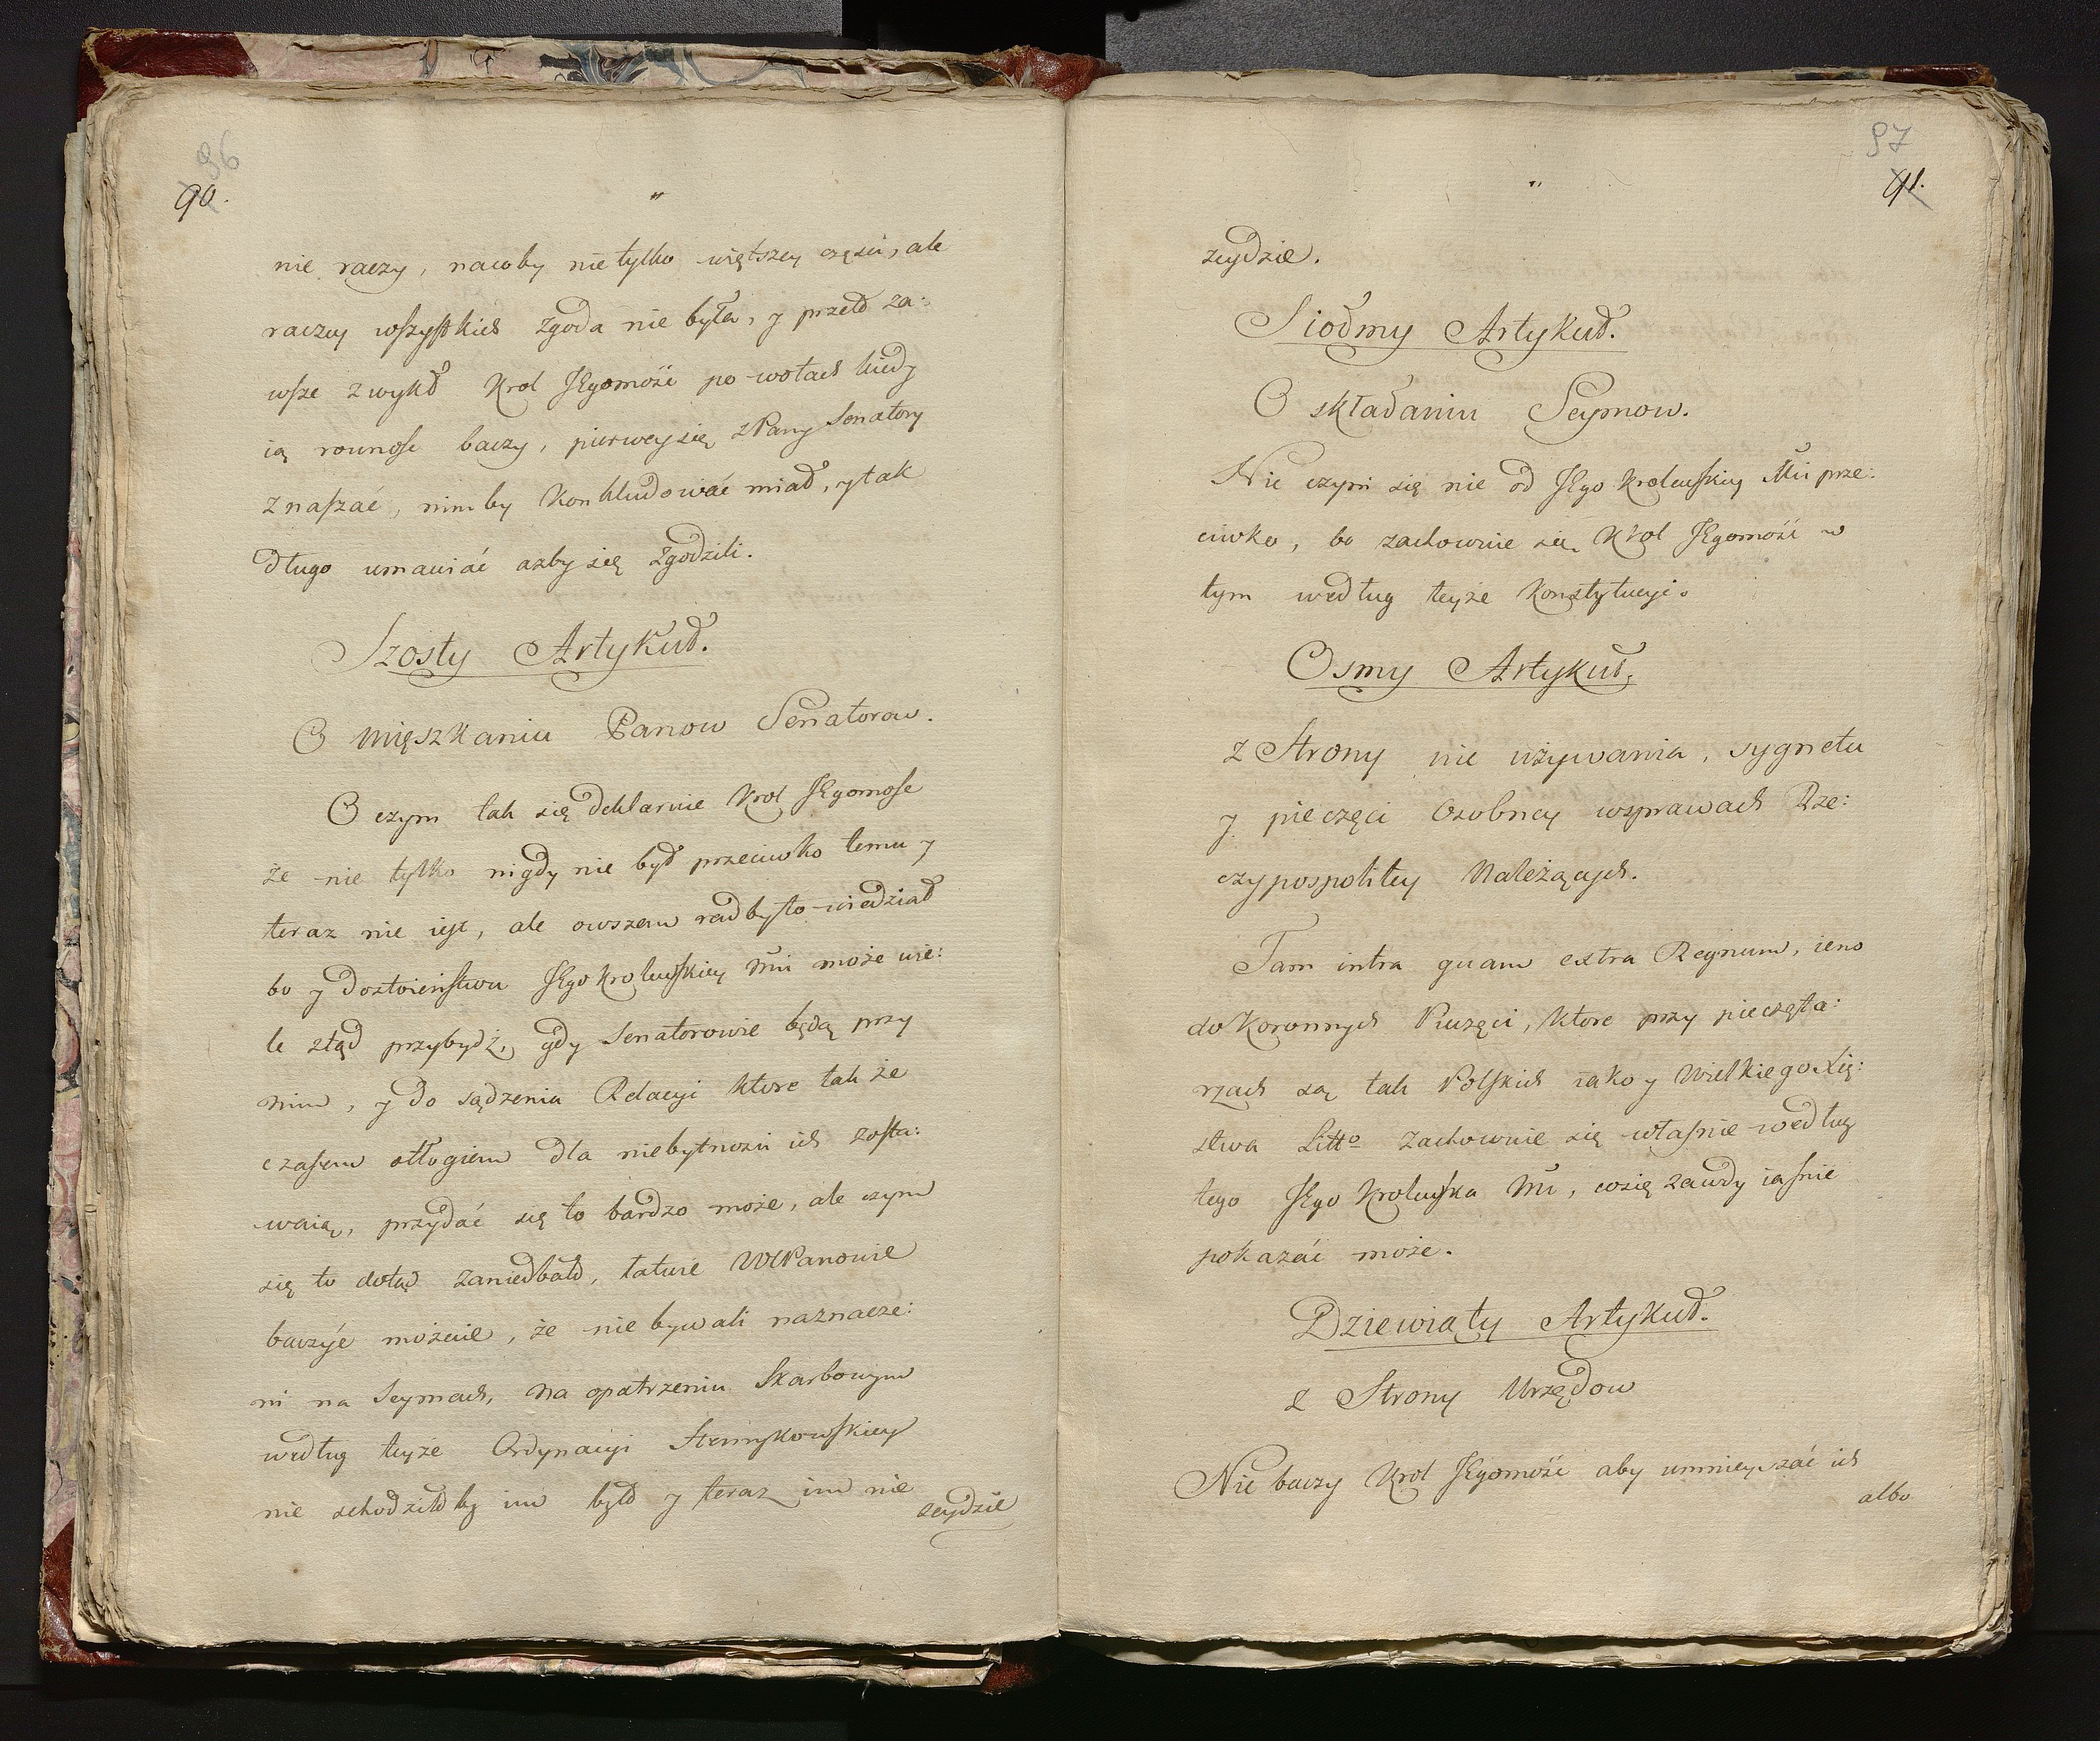 96
90.
nie raczy, nacoby nie tylko większey części, ale
raczey wszystkich zgoda nie była, y przeto za:
wsze zwykł Krol JEgomość po wotach kiedy
ią rownose baczy, pierwey się z Pany Senatory
znaszać, nim by konkludować miał, y tak
długo umawiać azby się zgodzili.
Szosty Artykuł.
O mięszkaniu Panow Senatorow.
O czym tak się deklaruie Krol JEgomose
że nie tylko nigdy nie był przeciwko temu y
teraz nie iest, ale owszem rad by to wiedział
bo y dostoieństwu JEgo Krolewskiey Mci może wie:
le ztąd przybydź, gdy Senatorowie będą przy
nim, y do sądzenia Relacyi ktore tak że
czasem odłogiem dla niebytności ich zosta:
waią, przydać się to bardzo może, ale czym
się to dotąd zaniedbało, łatwie WPanowie
baczyć możecie, że nie bywali naznacze:
ni na Seymach, na opatrzeniu Skarbowym
według teyże Ordynacyi
nie schodziłoby im było y teraz im nie
zeydzie
97
91.
zeydzie.
Siodmy Artykuł.
O składaniu Seymow.
Nic czyni się nie od JEgo Krolewskiey Mci prze:
ciwko, bo zachowuie się Krol JEgomość w
tym według teyże Konstytucyi.
Osmy Artykuł.
z Strony nie używania, sygnetu
y pieczęci Osobney w sprawach Rze:
czypospolitey Należących.
Tam intra quam extra Regnum, ieno
do Koronnych Pieczęci, ktore przy pieczęta:
rzach są tak Polskich iako y Wielkiego Xię:
stwa Litto zachowuie się własnie według
tego JEgo Krolewska Mć, co się zawdy iasnie
pokazać może.
Dziewiąty Artykuł.
z Strony Urzędow
Nie baczy Krol JEgomość aby umnieyszać ich
albo